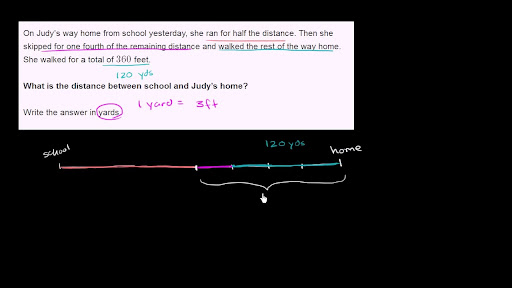 On Judy's way home from school yesterday, she ran for half the distance. Then she
skipped for one fourth of the remaining distance and walked the rest of the way home.
She walked for a total of 360 feet.
120 yds
What is the distance between school and Judy's home?
Write the answer in yards.
1 yard = 3ft
school
120 yds
home